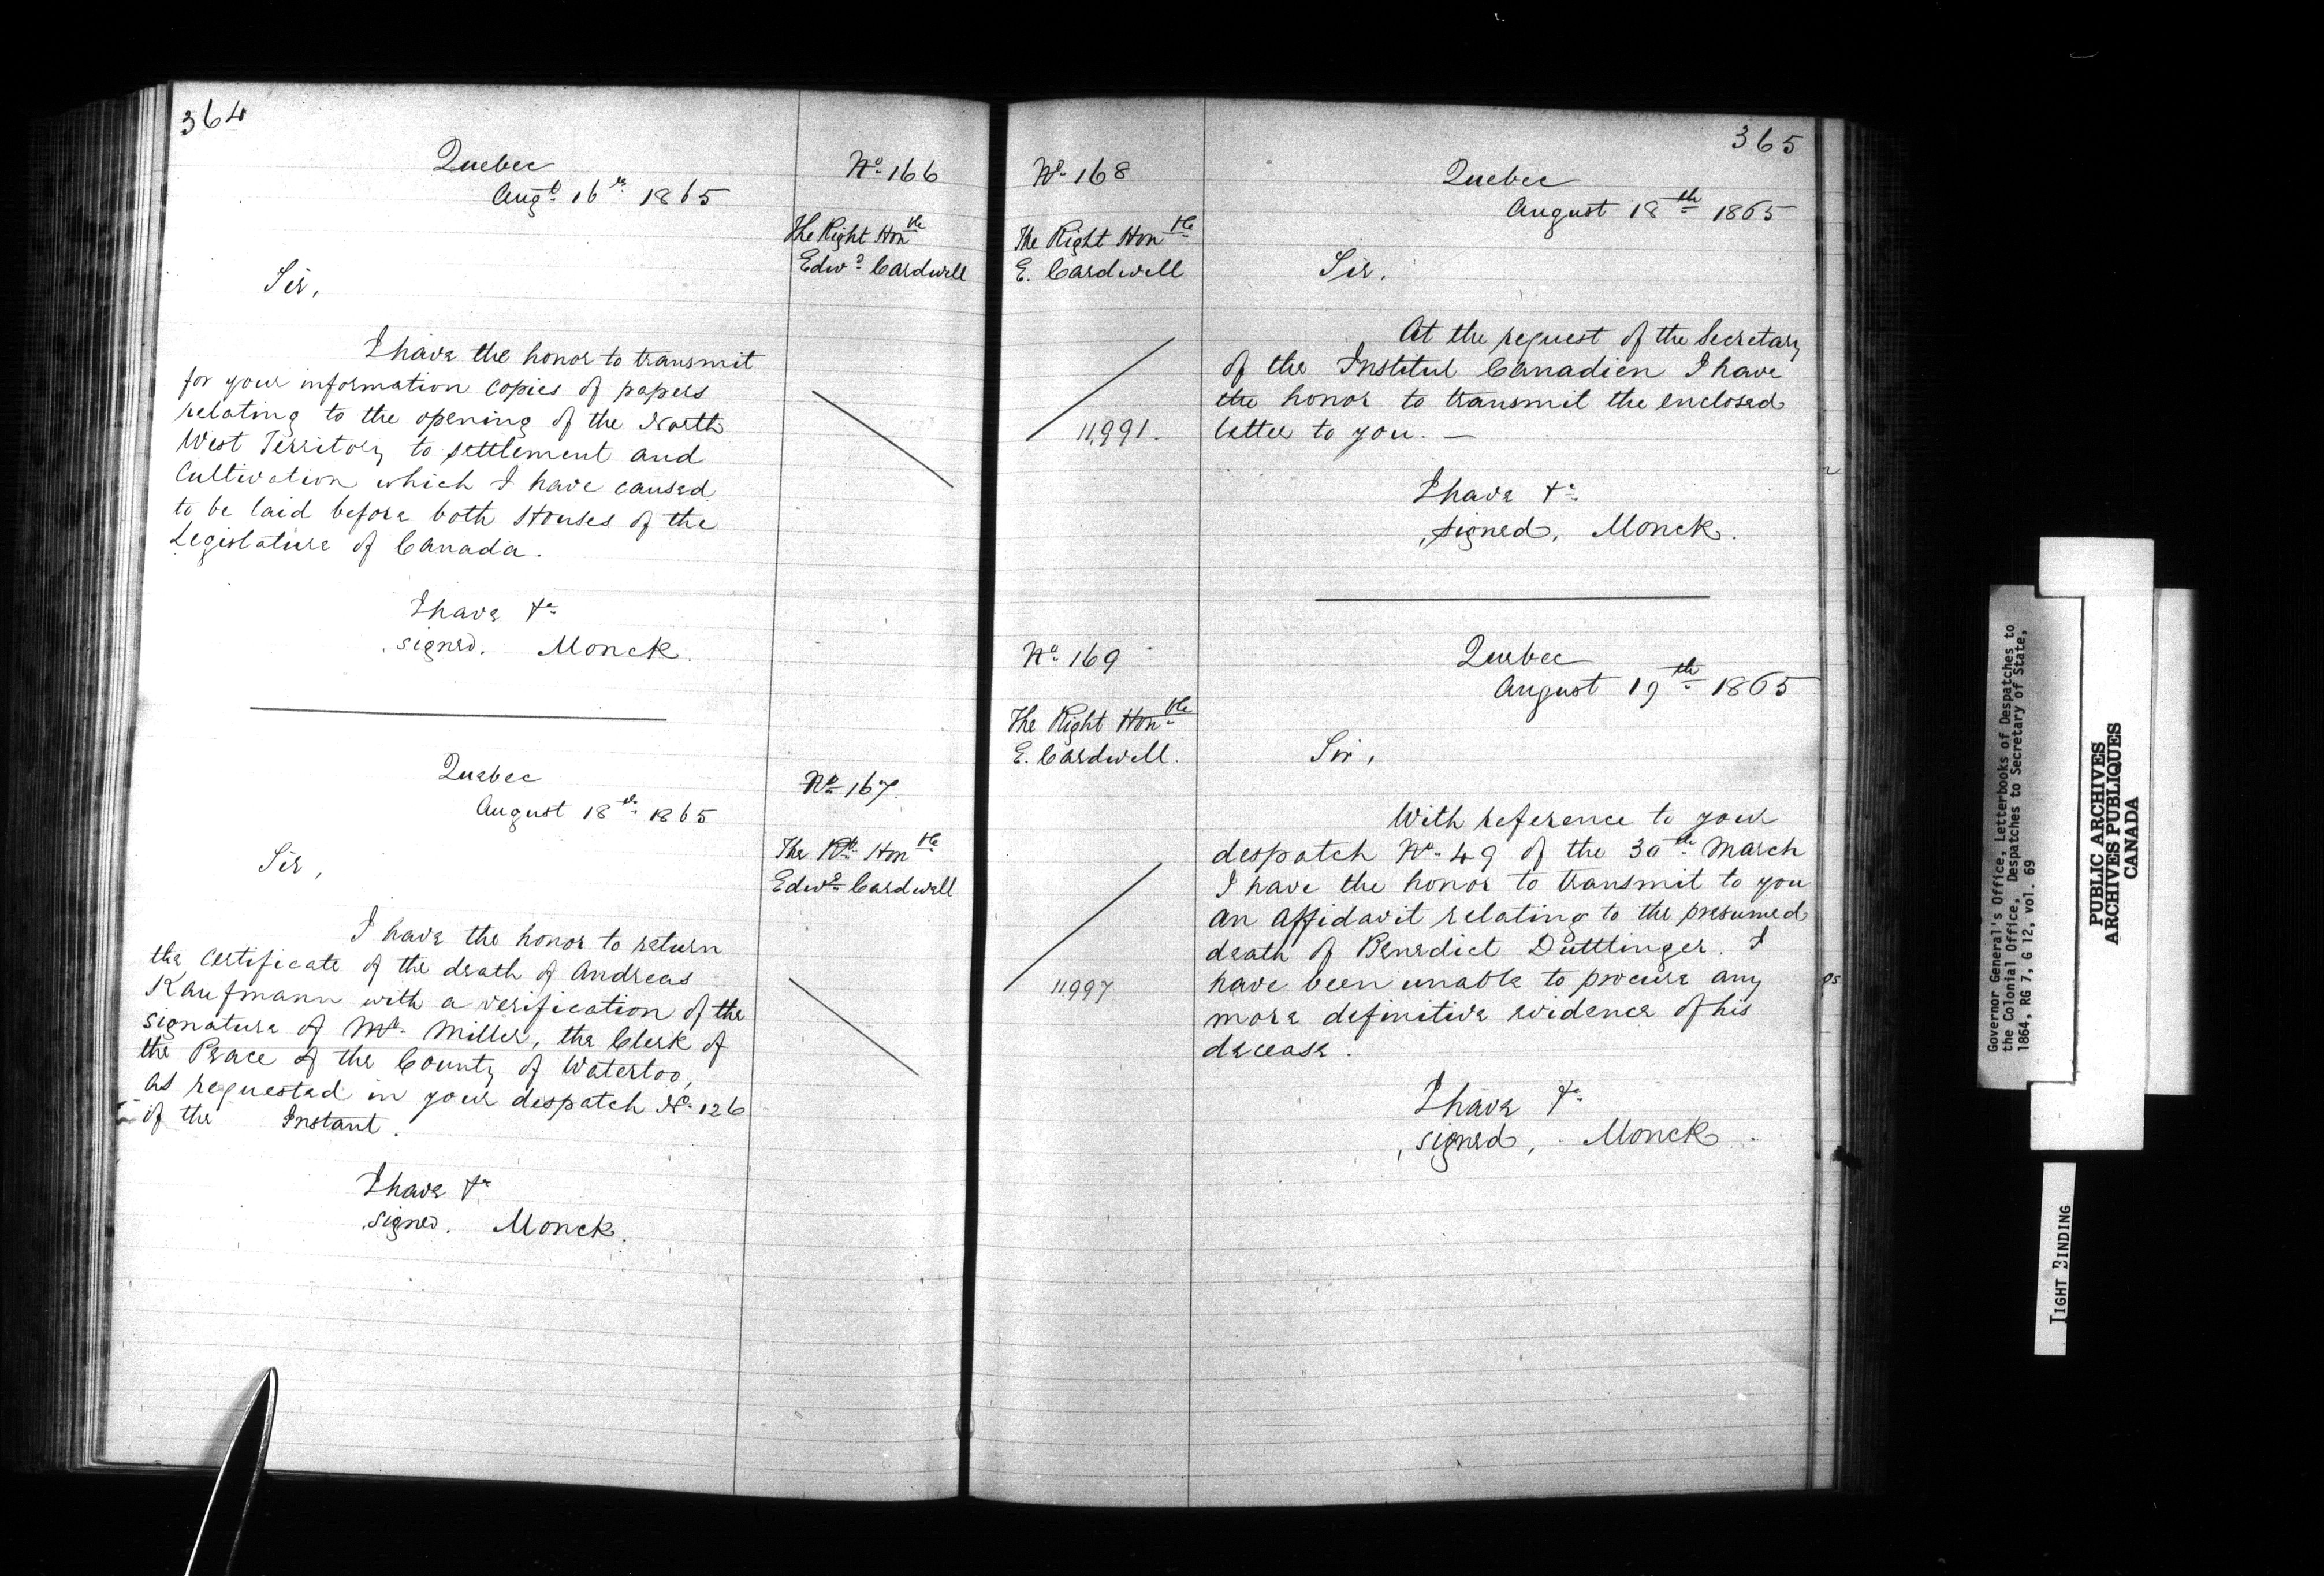 364
Quebec
Augt 16th 1865
No 166
The Right Honble
Edwd Cardwell
Sir,
I have the honor to transmit
for your information copies of papers
relating to the opening of the North
West Territory to settlement and
Cultivation which I have caused
to be laid before both Houses of the
Legislature of Canada.
I have &c
signed. Monck.
Quebec
August 18th 1865
No 167.
The Rt Honble
Edwd Cardwell
Sir,
I have the honor to return
the certificate of the death of Andreas
Kaufmann with a verification of the
signature of Mr Miller, the Clerk of
the Peace of the County of Waterloo,
as requested in your despatch No 126
of the Instant.
I have &c
signed. Monck.
365
No 168
The Right Honble
E. Cardwell
Quebec
August 18th 1865
Sir.
At the request of the Secretary
of the Institut Canadien I have
the honor to transmit the enclosed
letter to you. —
11,991.
I have &c
signed, Monck.
No 169
The Right Honble
E. Cardwell.
Quebec
August 19th 1865
Sir,
With reference to your
despatch No 49 of the 30th March
I have the honor to transmit to you
an Affidavit relating to the presumed
death of Benedict Duttlinger. I
have been unable to procure any
more definitive evidence of his
decease.
11997
I have &c
signed, Monck.
Governor General's Office, Letterbooks of Despatches to
the Colonial Office, Despatches to Secretary of State,
1864, RG 7, G 12, vol. 69
PUBLIC ARCHIVES
ARCHIVES PUBLIQUES
CANADA
TIGHT BINDING